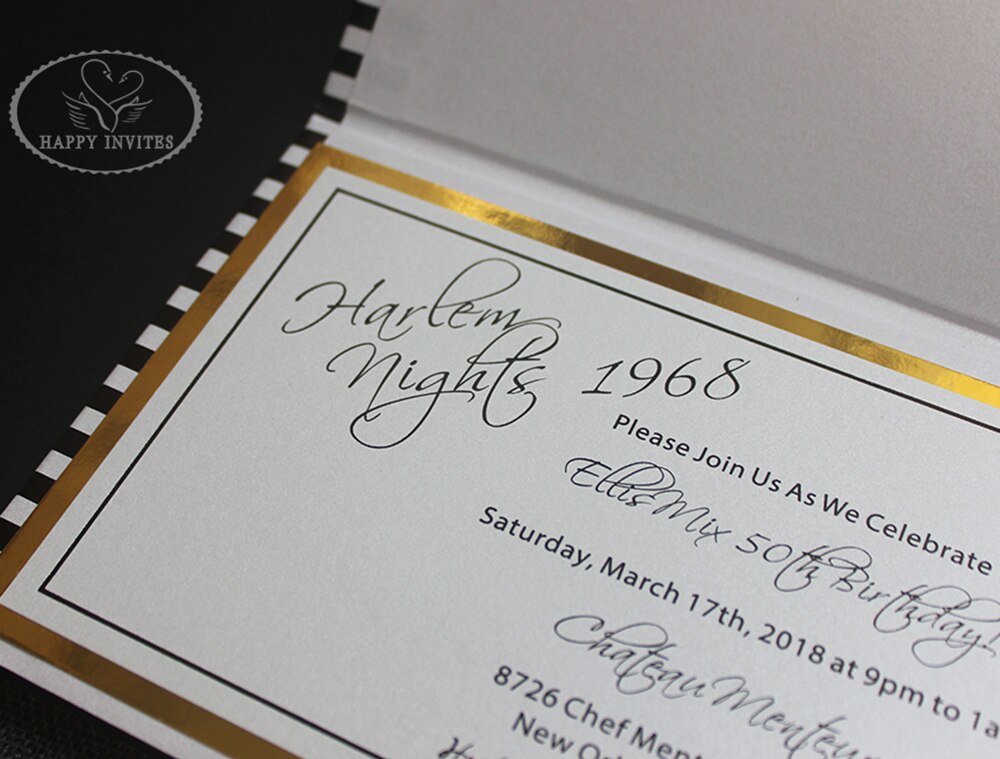 HAPPY INVITES
Harlem
Nights 1968
Please Join Us As We Celebrate
Ellis Mix 50th Birthday!
Saturday, March 17th, 2018 at 9pm to
Chateau
8726 Chef
New